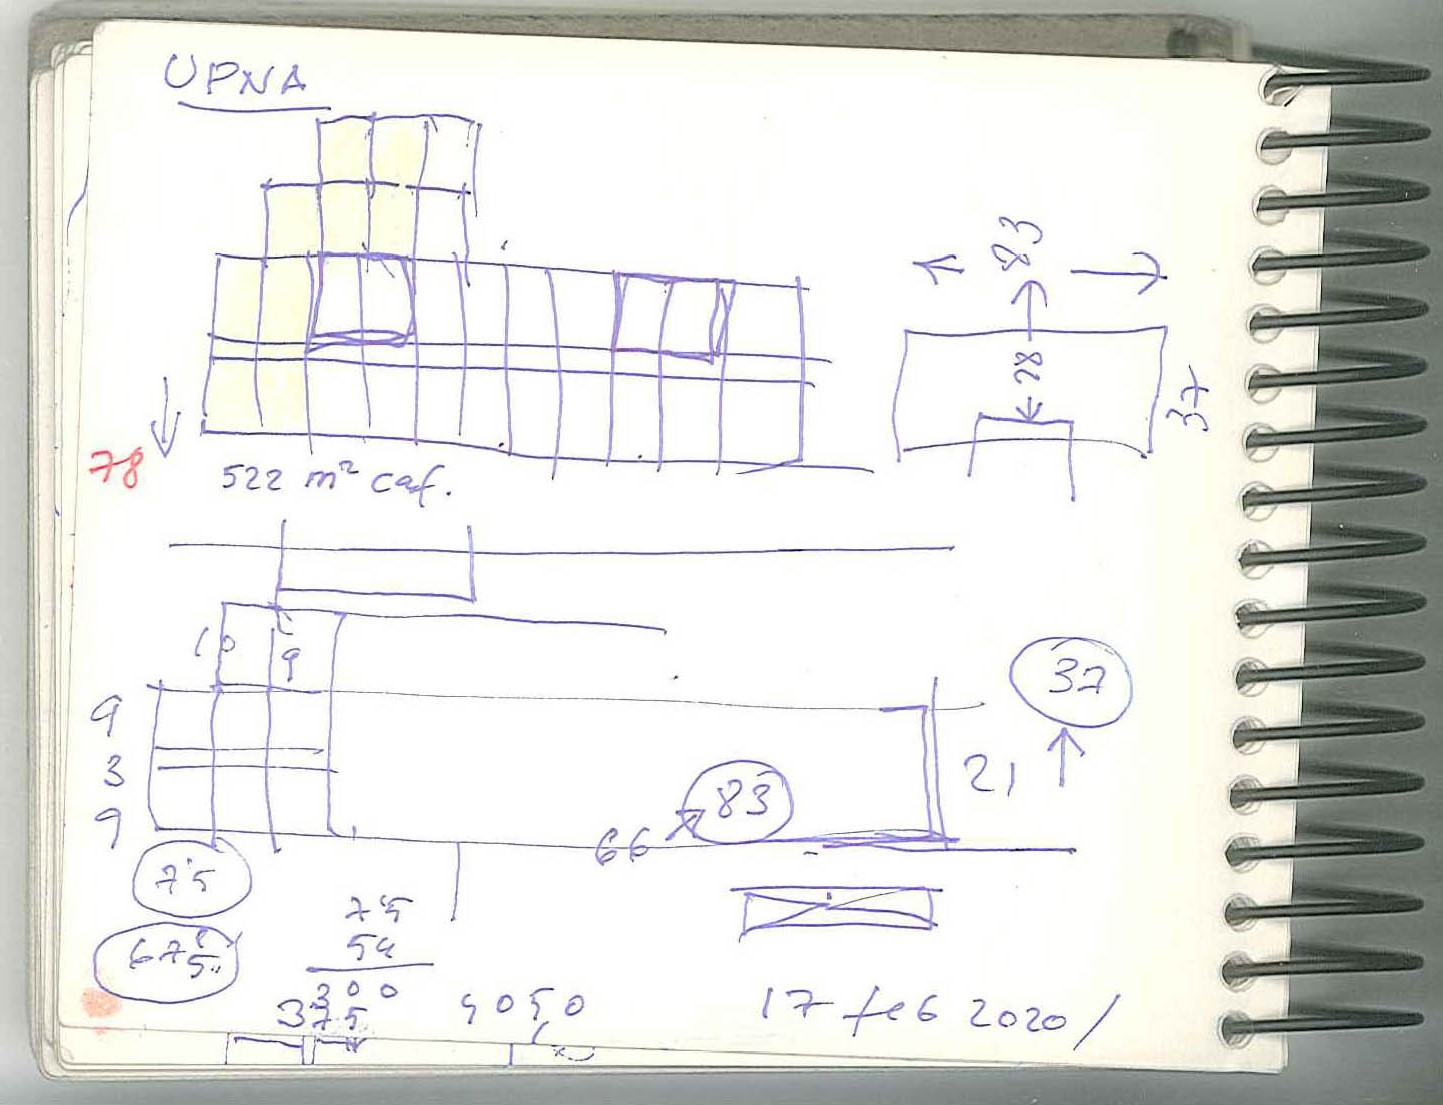 UPNA
83
28
37
78
522 m² caf.
10
9
9
3
9
37
21
83
66
75
675
75
54
300
375
4050
17 feb 2020/